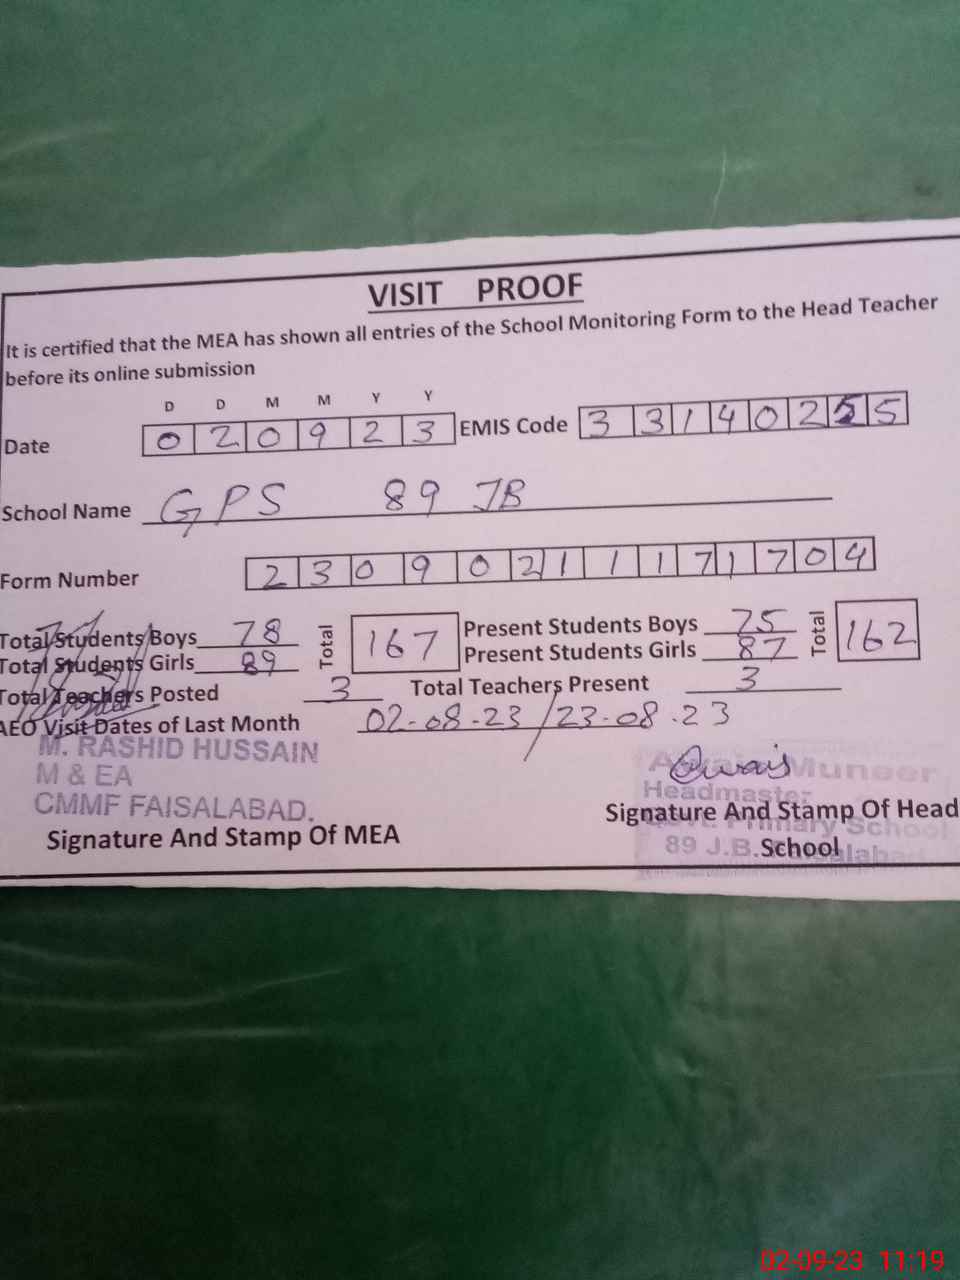 VISIT PROOF
It is certified that the MEA has shown all entries of the School Monitoring Form to the Head Teacher
before its online submission
D D M M Y Y
Date 0 2 0 9 2 3 EMIS Code 3 3 1 4 0 2 5 5
School Name GPS 89 JB
Form Number 2 3 0 9 0 2 1 1 1 7 1 7 0 4
Total Students Boys 78 Total 167 Present Students Boys 75 Total 162
Total Students Girls 89 Present Students Girls 87
Total Teachers Posted 3 Total Teachers Present 3
AEO Visit Dates of Last Month 02-08-23 / 23-08-23
M. RASHID HUSSAIN
M & EA
CMMF FAISALABAD.
Signature And Stamp Of MEA
Owais
Muneer
Headmaster
Signature And Stamp Of Head
Govt. Primary School
89 J.B. Faisalabad
School
02-09-23 11:19